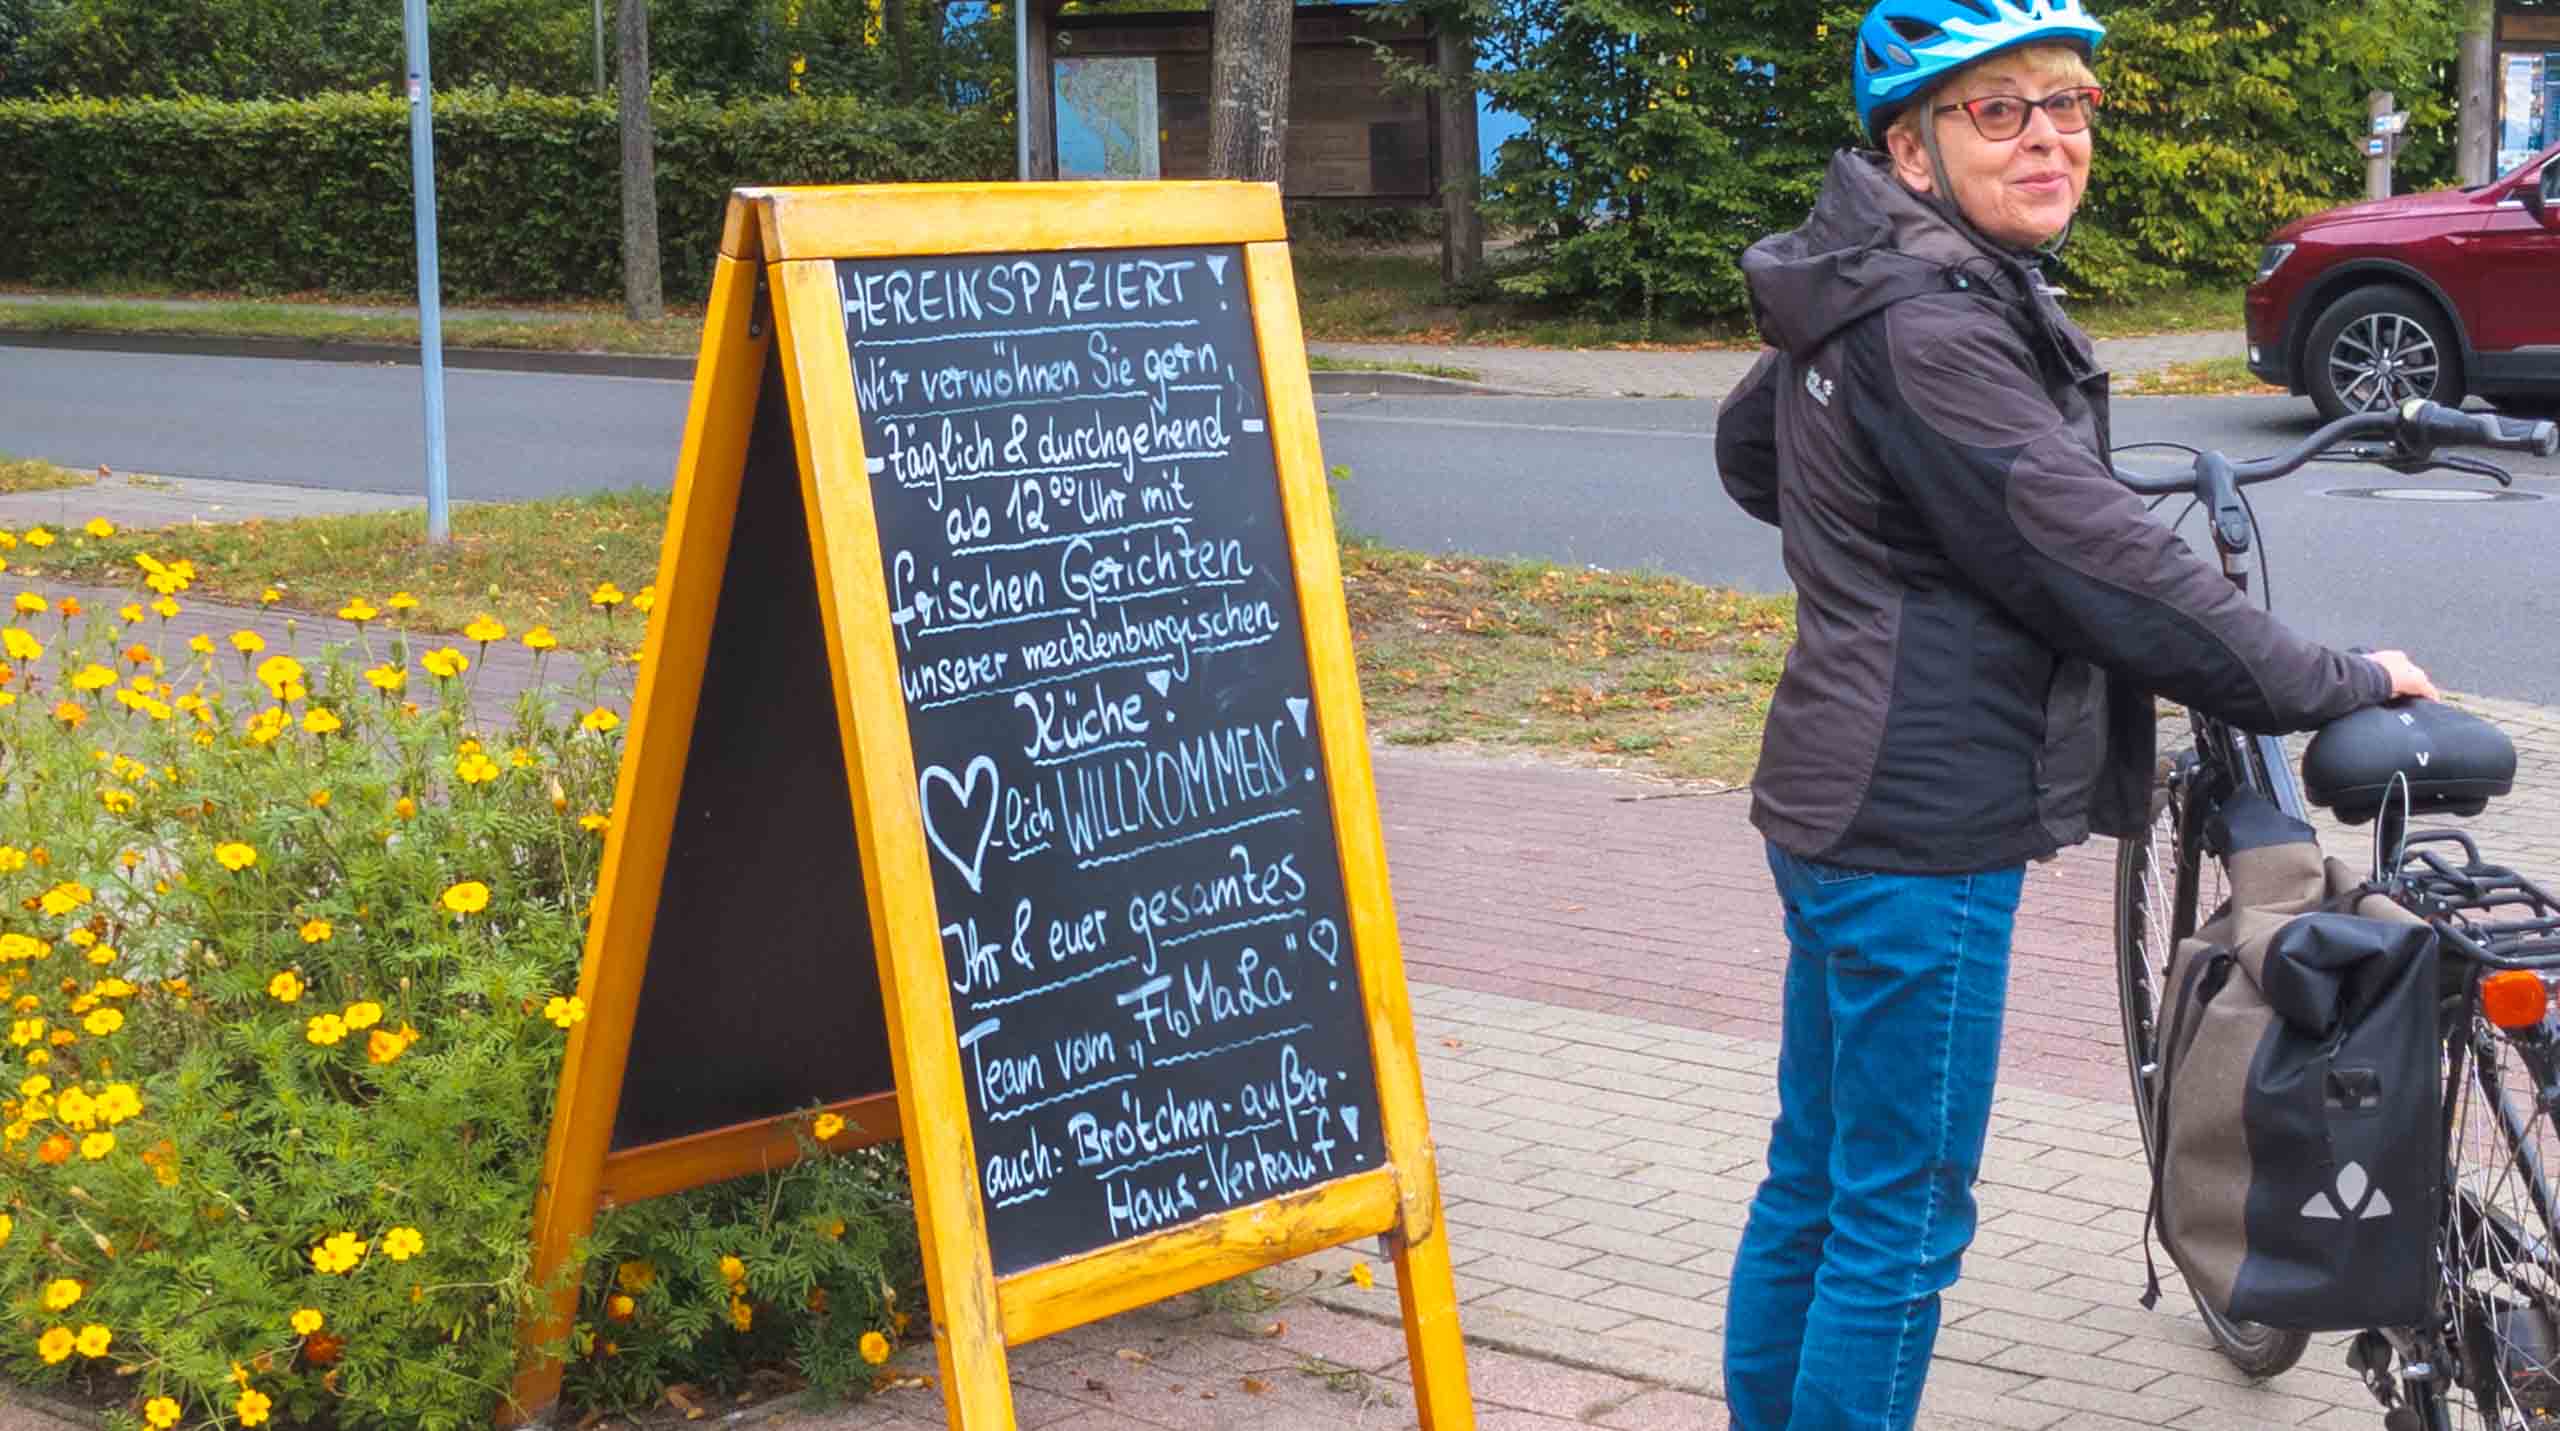 HEREINSPAZIERT!
Wir verwöhnen Sie gern,
- täglich & durchgehend -
ab 12⁰⁰ Uhr mit
frischen Gerichten
unserer mecklenburgischen
Küche!
♡-lich WILLKOMMEN!
Ihr & euer gesamtes
Team vom „FloMaLa"!
auch: Brötchen-außer-
Haus-Verkauf!